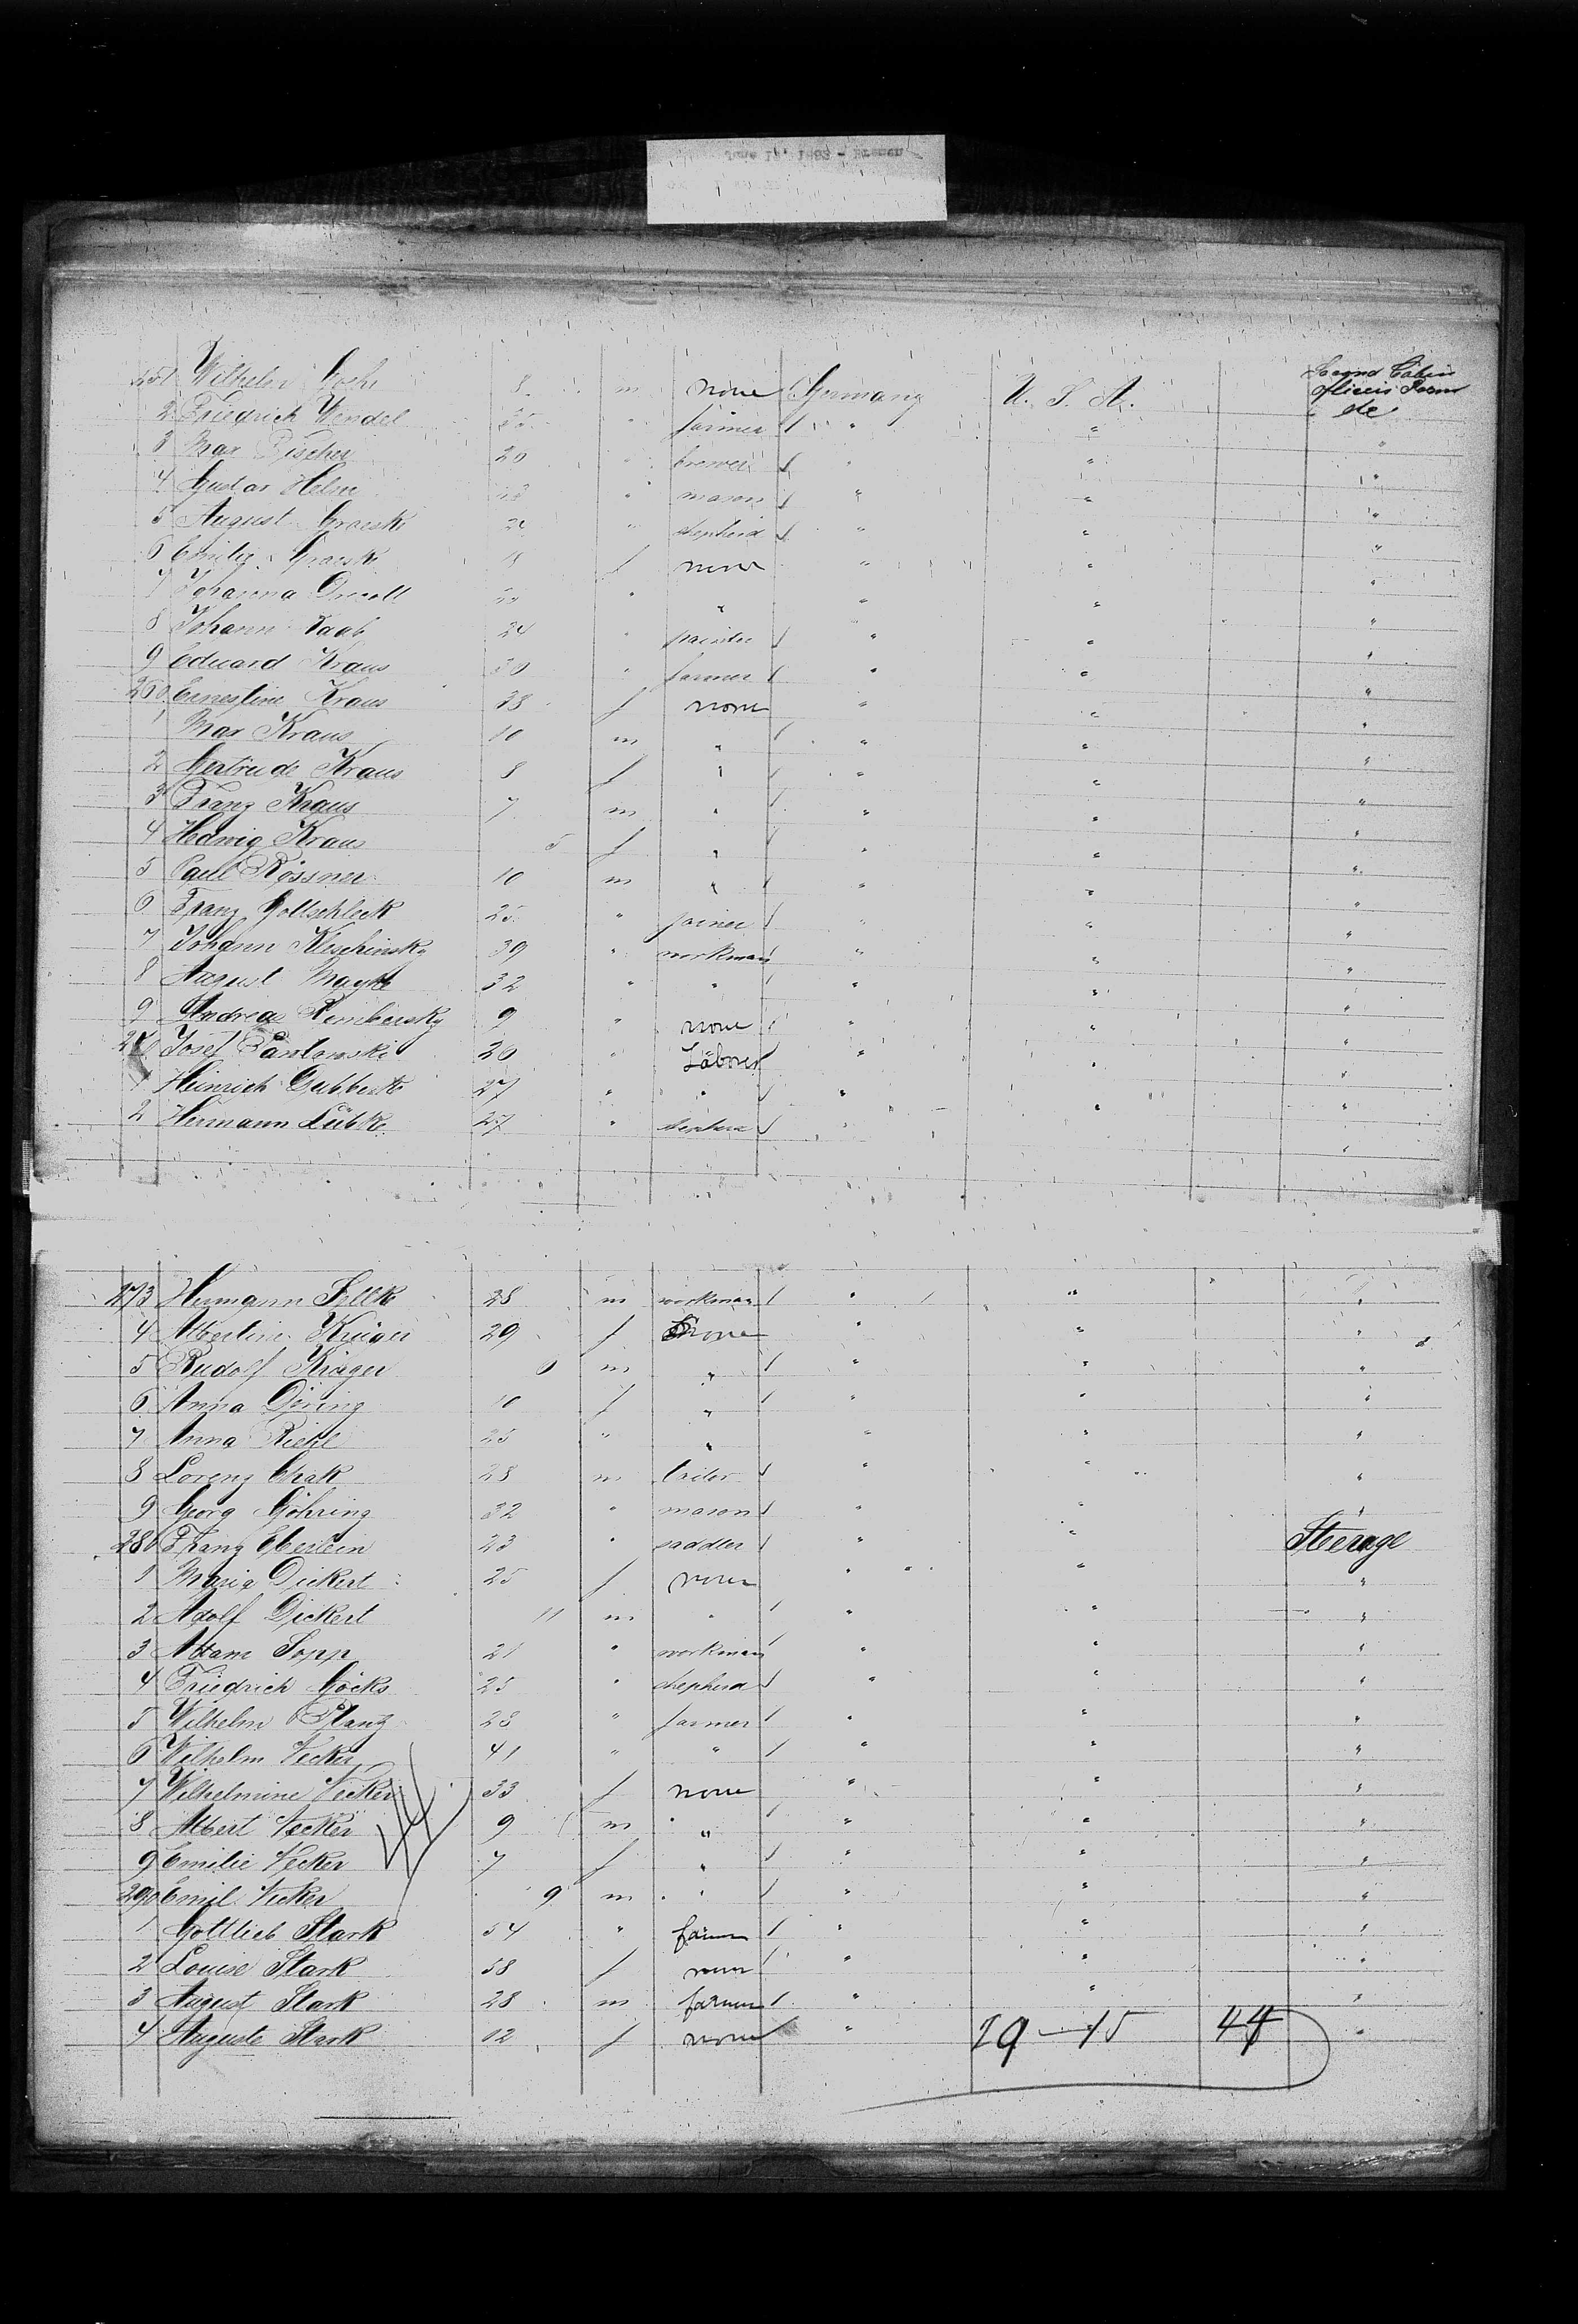 June 1 1883 - Bremen
251 Wilhelm 8 m none Germany U. S. A. Second Cabin Officers Room etc
2 Friedrich Wendel farmer " "
3 Max Fischer 20 " brewer " " "
4 Gustav Helm " mason " " "
5 August Graeske " shepherd " " "
6 Emilie Graeske f none " " "
7 Johanna " " " " "
8 Johann Raab 24 " painter " " "
9 Eduard Kraus 30 " farmer " " "
260 Ernestine Kraus 38 f none " " "
1 Max Kraus 10 m " " " "
2 Gertrude Kraus 8 f " " " "
3 Franz Kraus 7 m " " " "
4 Hedwig Kraus 5 f " " " "
5 Paul Rössner 10 m " " " "
6 Franz Gottschleck 25 " joiner " " "
7 Johann Kleschinsky 39 " workman " " "
8 August 32 " " " " "
9 Andreas Rembarsky 9 " none " " "
270 Josef 26 " Laborer " " "
1 Heinrich 27 " " " " "
2 Hermann Lübke 27 " shepherd " "
273 Hermann Sellk 28 m workman " " "
4 Albertine Krüger 29 f none " " "
5 Rudolf Krüger 6 m " " " "
6 Anna Döring 10 f " " " "
7 Anna Riehl 25 " " " " "
8 Lorenz 28 m " " "
9 Georg Göhring 32 " mason " " "
280 Franz Eberlein 23 " saddler " " Steerage
1 Maria Dickert 25 f none " " "
2 Adolf Dickert 11 m " " " "
3 Adam Sopp 21 " workman " " "
4 Friedrich Göcks 25 " shepherd " " "
5 Wilhelm Plantz 28 " farmer " " "
6 Wilhelm Vecker 41 " " " " "
7 Wilhelmine Vecker 33 f none " " "
8 Albert Vecker 9 m " " " "
9 Emilie Vecker 7 f " " " "
290 Emil Vecker 9 m " " " "
1 Gottlieb Stark 54 " farmer " " "
2 Louise Stark 58 f none " " "
3 August Stark 28 m farmer " " "
4 Auguste Stark 12 f none " 29 - 15 44 "